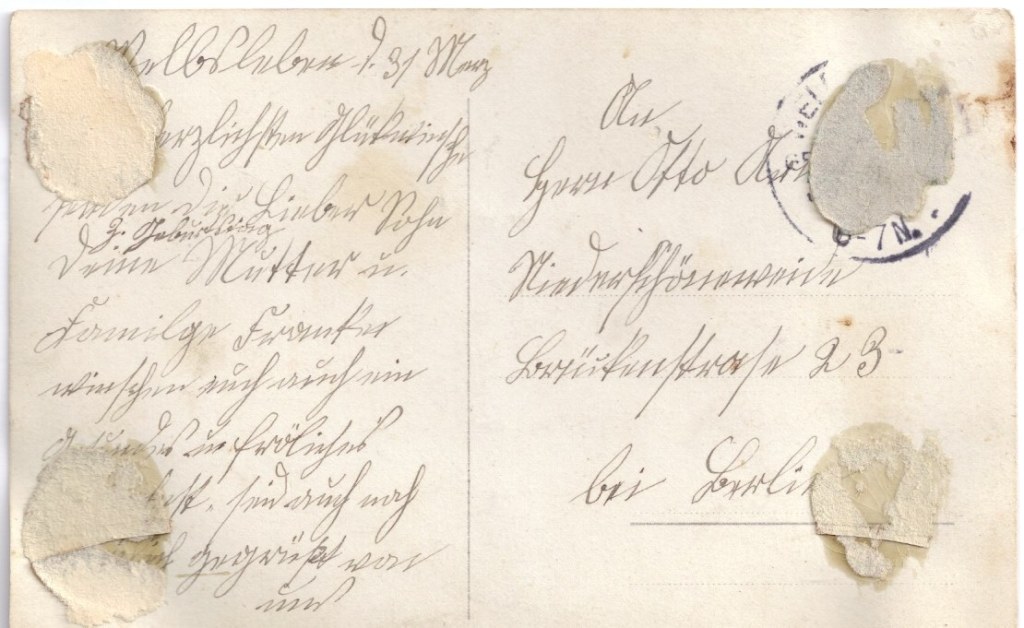 Welbsleben d. 31 Merz
erzlichsten Glükwinsche
senden Dir Lieber Sohn
z. Geburtstag
Deine Mutter u.
Familge Franker
winschen euch auch ein
gesundes u fröliches
fest. seid auch noch
gegrüst von
uns
An
Herrn Otto
Niederschöneweide
Brükenstrase 23
bei Berlin
6-7N.